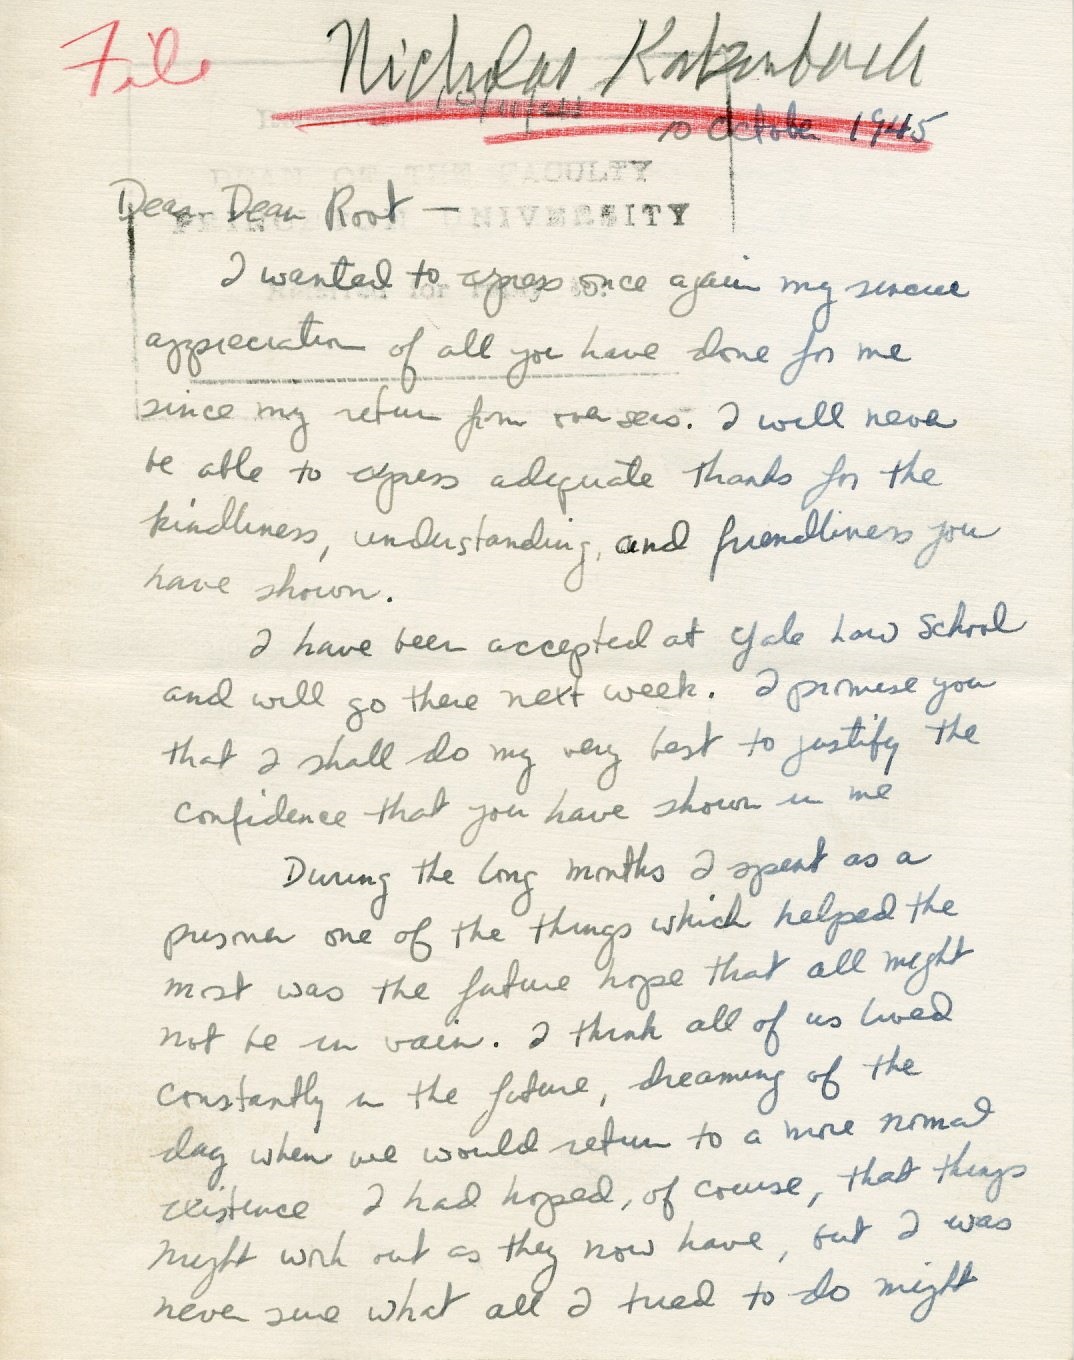 File
Nicholas Katzenbach
10 October 1945
DEAN OF THE FACULTY
PRINCETON UNIVERSITY
Dear Dean Root —
I wanted to express once again my sincere
appreciation of all you have done for me
since my return from overseas. I will never
be able to express adequate thanks for the
kindliness, understanding, and friendliness you
have shown.
I have been accepted at Yale Law School
and will go there next week. I promise you
that I shall do my very best to justify the
confidence that you have shown in me
During the long months I spent as a
prisoner one of the things which helped the
most was the future hope that all might
not be in vain. I think all of us lived
constantly in the future, dreaming of the
day when we would return to a more normal
existence I had hoped, of course, that things
might work out as they now have, but I was
never sure what all I tried to do might